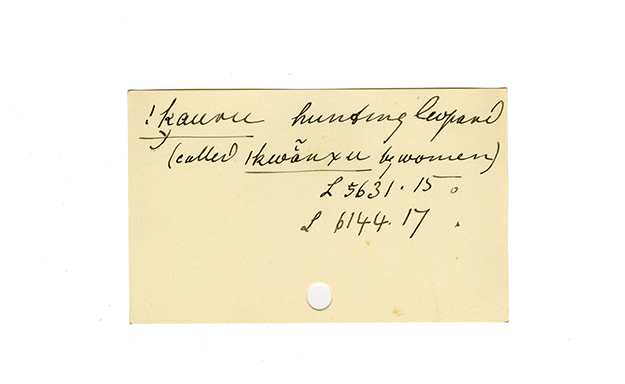 !kauru hunting leopard
(called ǀkwãnxu by women)
L 5631.15 o
L 6144.17 .